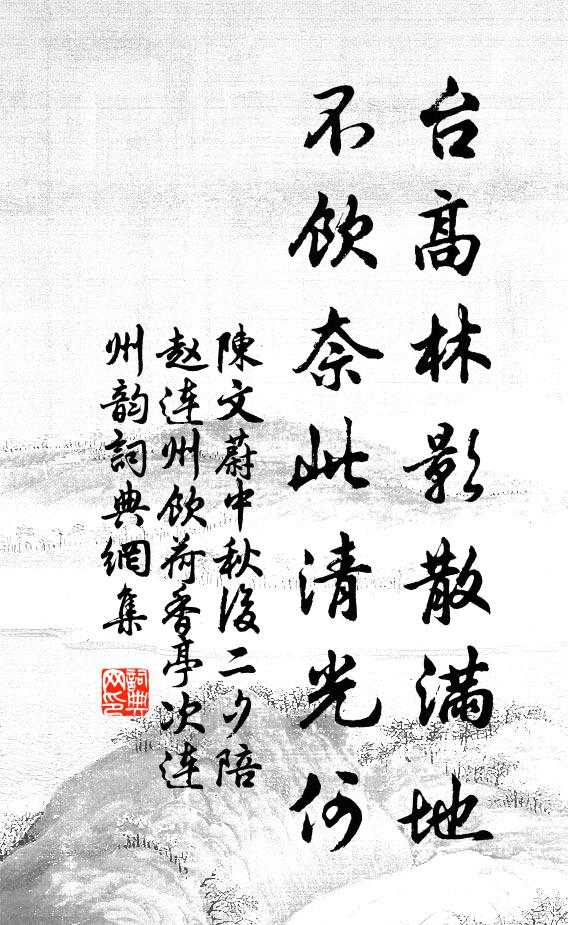 台高林影散滿地
不飲奈此清光何
陳文蔚中秋後二夕陪
赵连州飲荷香亭次连
州韵詞典網集
詞典
网印